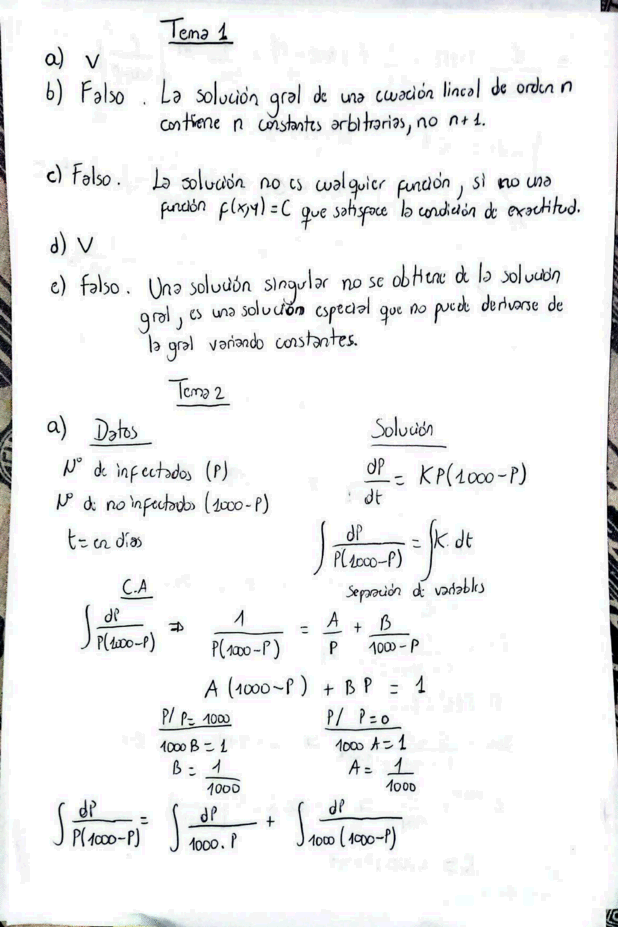 Tema 1
a) V
b) Falso. La solución gral de una ecuación lineal de orden n
contiene n constantes arbitrarias, no n+1.
c) Falso. La solución no es cualquier función, si no una
función f(x,y)=C que satisface la condición de exactitud.
d) V
e) falso. Una solución singular no se obtiene de la solución
gral, es una solución especial que no puede derivarse de
la gral variando constantes.
Tema 2
a) Datos
Solución
N° de infectados (P)
dP/dt = KP(1000-P)
N° de no infectados (1000-P)
t= en días
∫ dP/P(1000-P) = ∫K. dt
Separación de variables
C.A
∫ dP/P(1000-P) ⇒ 1/P(1000-P) = A/P + B/1000-P
A (1000-P) + B P = 1
P/ P= 1000
P/ P=0
1000 B = 1
1000 A = 1
B = 1/1000
A = 1/1000
∫ dP/P(1000-P) = ∫ dP/1000.P + ∫ dP/1000(1000-P)